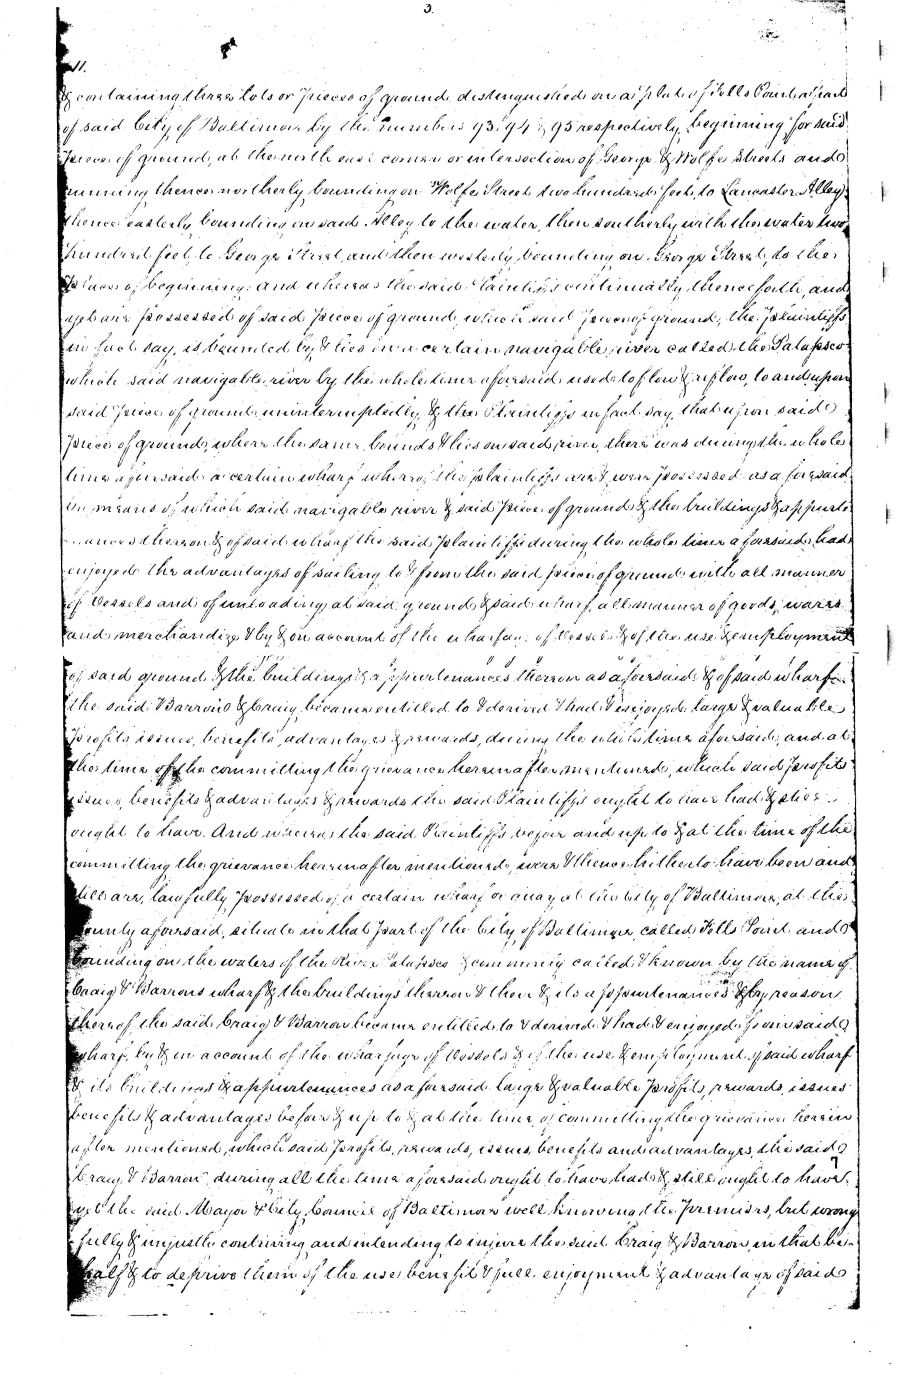 3.
11.
& containing three Lots or pieces of ground, distinguished on a plat of Fells Point a part
of said City of Baltimore by the numbers 93. 94 & 95 respectively, beginning for said
piece of ground, at the north east corner or intersection of George & Wolfe Streets and
running thence northerly, bounding on Wolfe Street two hundred feet, to Lancaster Alley,
thence easterly bounding on said Alley to the water, then southerly with the water two
hundred feet, to George Street, and then westerly, bounding on George Street, to the
place of beginning: and whereas the said Plaintiffs continually, thenceforth, and
yet are possessed of said piece of ground, which said piece of ground, the Plaintiffs
in fact say, is bounded by, & lies in a certain navigable river called the Patapsco
which said navigable river by the whole time aforesaid used to flow & reflow, to and upon
said piece of ground uninterruptedly, & the Plaintiffs in fact say, that upon said
piece of ground, where the same bounds & lies on said river, there was during the whole
time aforesaid a certain wharf whereof the plaintiffs are & were possessed as aforesaid
by means of which said navigable river & said piece of ground & the buildings & appurte
nances thereon & of said wharf the said Plaintiffs during the whole time aforesaid, had
enjoyed the advantages of sailing to & from the said piece of ground with all manner
of Vessels and of unloading, at said ground & said wharf, all manner of goods, wares
and merchandize & by & on account of the wharfage of Vessels & of the use & employment
of said ground & the buildings & appurtenances thereon as aforesaid & of said wharf
the said Barrons & Craig, became entitled to & derived & had & enjoyed large & valuable
profits, issues, benefits, advantages & rewards, during the whole time aforesaid, and at
the time of the committing the grievance hereinafter mentioned, which said profits
issues, benefits & advantages & rewards the said Plaintiffs ought to have had & still
ought to have. And whereas the said Plaintiffs before and up to & at the time of the
committing the grievance hereinafter mentioned, were & thence hitherto have been and
still are, lawfully possessed of a certain wharf or quay at the City of Baltimore, at the
County aforesaid, situate in that part of the City of Baltimore, called Fells Point and
bounding on the waters of the River Patapsco & commonly called & known by the name of
Craig & Barrons wharf & the buildings thereon & then & its appurtenances & by reason
thereof, the said Craig & Barron became entitled to & derived & had & enjoyed from said
wharf, by & on account of the wharfage of Vessels & of the use & employment of said wharf
& its buildings & appurtenances as aforesaid large & valuable profits, rewards, issues
benefits & advantages before & up to & at the time of committing the grievance herein
after mentioned, which said profits, rewards, issues, benefits and advantages, the said
Craig & Barron during all the time aforesaid ought to have had & still ought to have.
yet the said Mayor & City Council of Baltimore well knowing the Premises, but wrong
fully & unjustly contriving and intending to injure the said Craig & Barron, in that be-
half & to deprive them of the use, benefit & full enjoyment & advantage of said